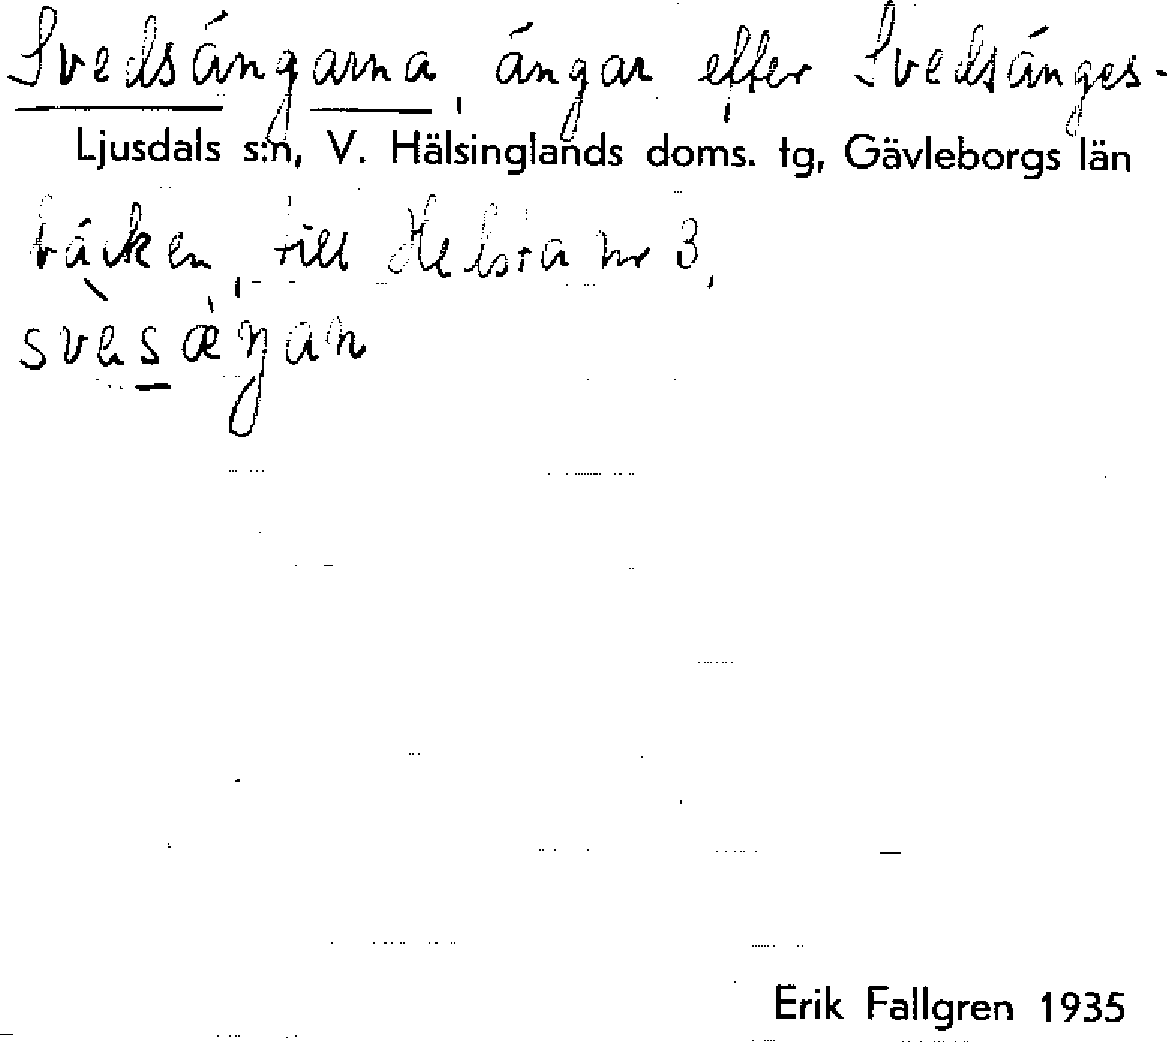 Svedsängarna, ängar efter Svedsänges-
Ljusdals s:n, V. Hälsinglands doms. tg, Gävleborgs län
bäcken, till Helsta nr 3,
Erik Fallgren 1935